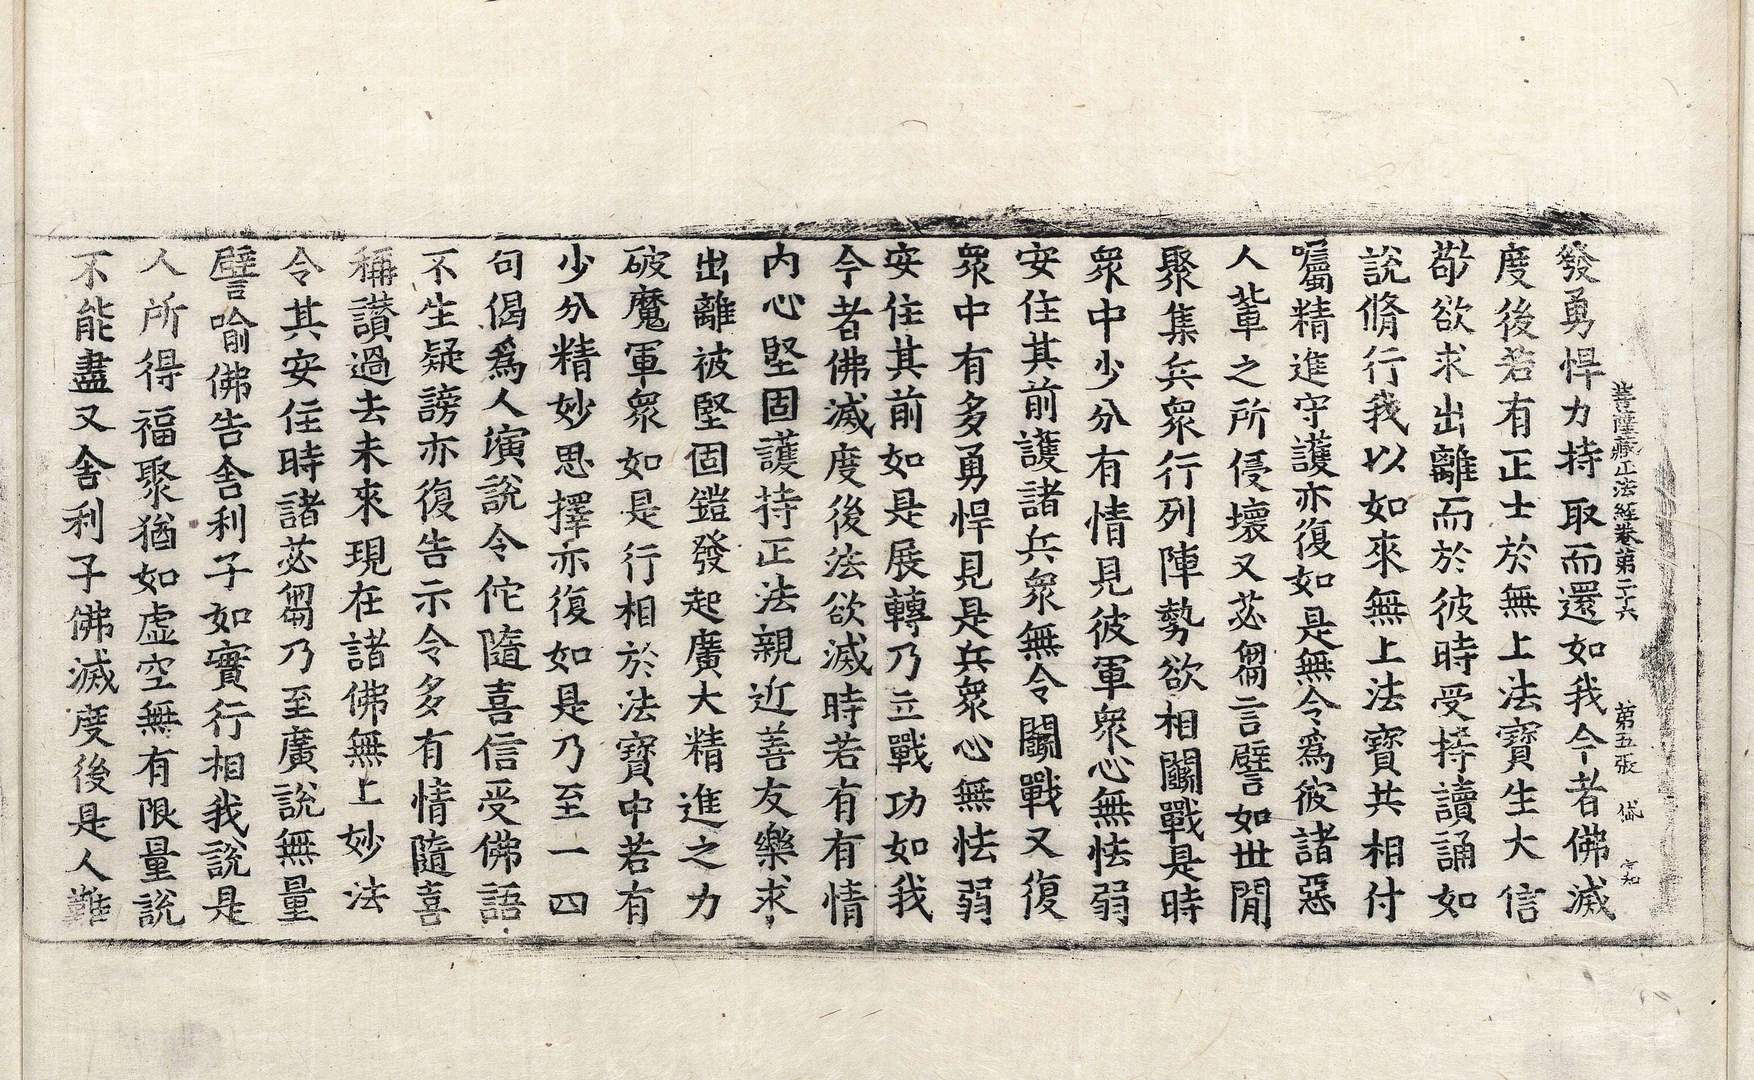 菩薩藏正法經卷第三十六　第五張　岱　宗知
發勇悍力持取而還如我今者佛滅
度後若有正士於無上法寶生大信
敬欲求出離而於彼時受持讀誦如
說脩行我以如來無上法寶其相付
囑精進守護亦復如是無令爲彼諸惡
人軰之所侵壞又苾芻言譬如世間
聚集兵衆行列陣勢欲相鬭戰是時
衆中少分有情見彼軍衆心無怯弱
安住其前護諸兵衆無令鬭戰又復
衆中有多勇悍見是兵衆心無怯弱
安住其前如是展轉乃立戰功如我
今者佛滅度後法欲滅時若有有情
内心堅固護持正法親近善友樂求
出離被堅固鎧發起廣大精進之力
破魔軍衆如是行相於法寶中若有
少分精妙思擇亦復如是乃至一四
句偈爲人演說令佗隨喜信受佛語
不生疑謗亦復告示令多有情隨喜
稱讃過去未來現在諸佛無上妙法
令其安住時諸苾芻乃至廣說無量
譬喻佛告舍利子如實行相我說是
人所得福聚猶如虛空無有限量說
不能盡又舍利子佛滅度後是人難